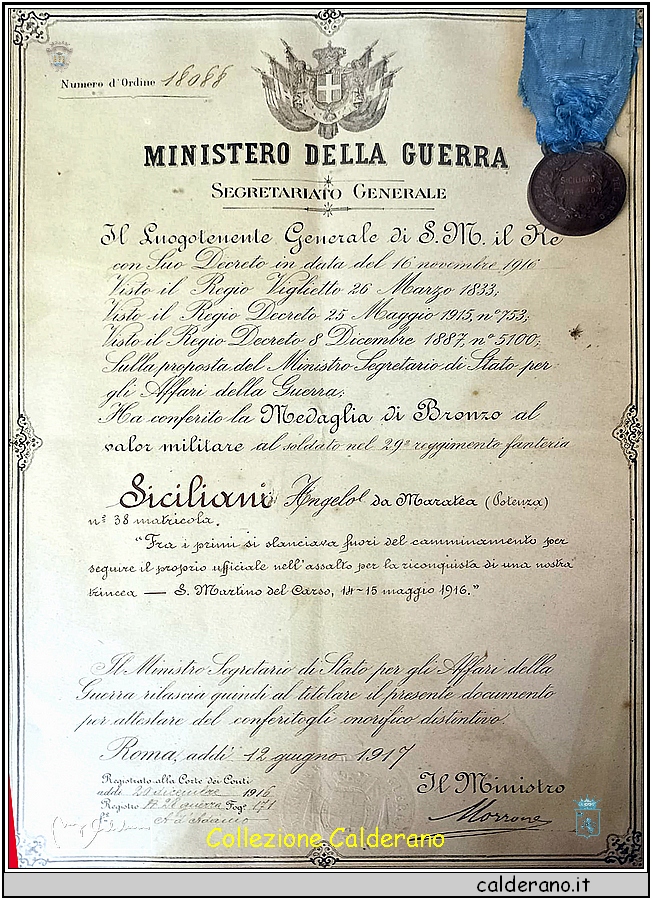 Numero d'Ordine 18088
MINISTERO DELLA GUERRA
SEGRETARIATO GENERALE
Il Luogotenente Generale di S.M. il Re
con Suo Decreto in data del 16 novembre 1916
Visto il Regio Viglietto 26 Marzo 1833;
Visto il Regio Decreto 25 Maggio 1915, nº 753;
Visto il Regio Decreto 8 Dicembre 1887, nº 5100;
Sulla proposta del Ministro Segretario di Stato per
gli Affari della Guerra;
Ha conferito la Medaglia di Bronzo al
valor militare al soldato nel 29º reggimento fanteria
Siciliani Angelo da Maratea (Potenza)
nº 38 matricola.
"Fra i primi si slanciava fuori del camminamento per
seguire il proprio ufficiale nell'assalto per la riconquista di una nostra
trincea — S. Martino del Carso, 14-15 maggio 1916."
Il Ministro Segretario di Stato per gli Affari della
Guerra rilascia quindi al titolare il presente documento
per attestare del conferitogli onorifico distintivo.
Roma, addì 12 giugno 1917
Registrato alla Corte dei Conti
addì 20 dicembre 1916
Registro 28 guerra Fogº 171
Il Ministro
Morrone
SICILIANI
ANGELO
Collezione Calderano
calderano.it